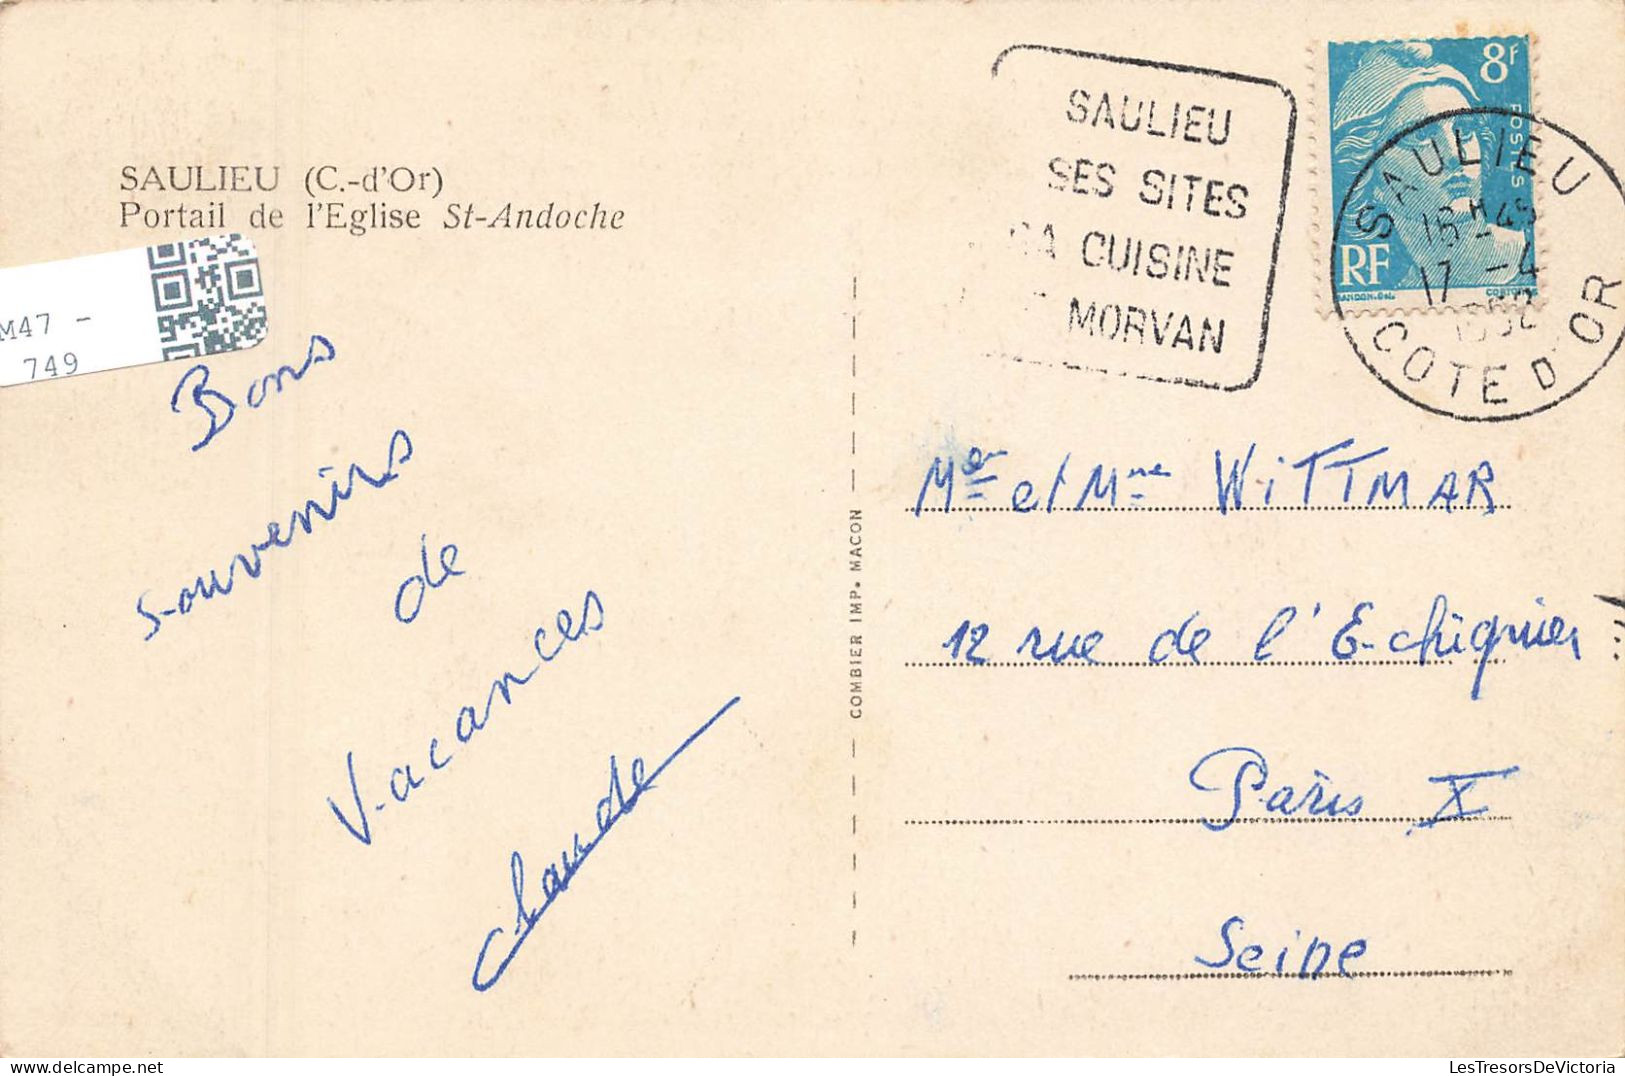 SAULIEU (C.-d'Or)
Portail de l'Eglise St-Andoche
M47 -
749
Bons
souvenirs
de
Vacances
Claude
COMBIER IMP. MACON
SAULIEU
SES SITES
SA CUISINE
MORVAN
8F
POSTES
RF
SAULIEU
16H-45
17 -4
1952
COTE D'OR
Mer et Mme WITTMAR
12 rue de l'Echiquier
Paris X
Seine
LesTresorsDeVictoria